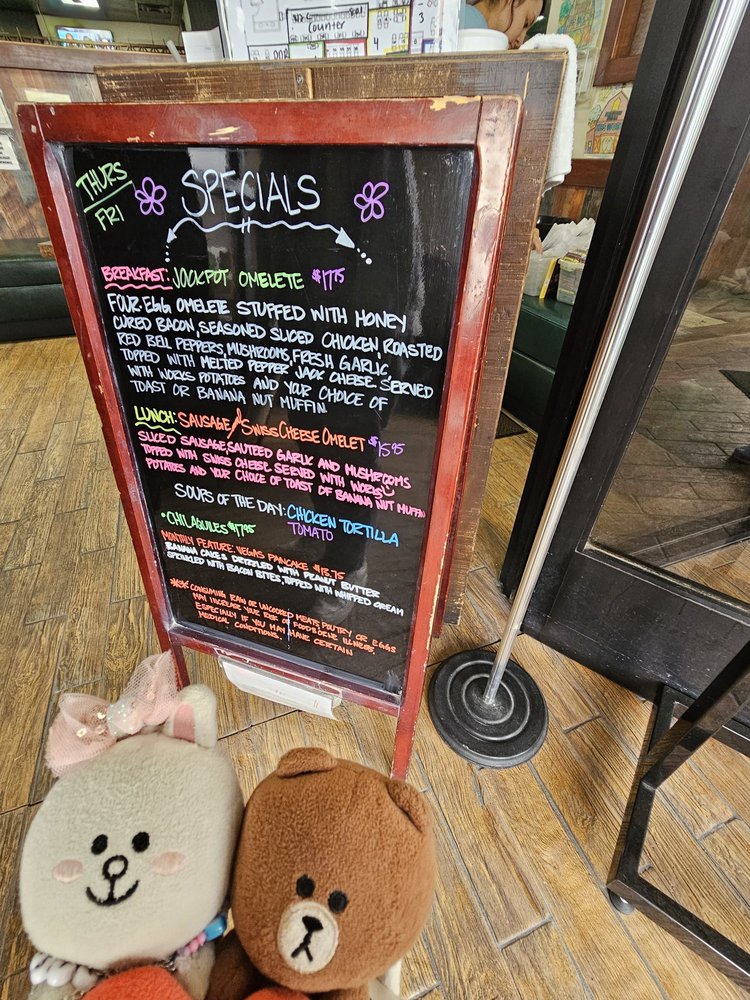 Counter
3
4
THURS
FRI
SPECIALS
BREAKFAST: JOCKPOT OMELETE $17.75
FOUR-EGG OMELETE STUFFED WITH HONEY
CURED BACON, SEASONED SLICED CHICKEN, ROASTED
RED BELL PEPPERS, MUSHROOMS, FRESH GARLIC,
TOPPED WITH MELTED PEPPER JACK CHEESE. SERVED
WITH WORKS POTATOES AND YOUR CHOICE OF
TOAST OR BANANA NUT MUFFIN
LUNCH: SAUSAGE/SWISS CHEESE OMELET $15.95
SLICED SAUSAGE, SAUTEED GARLIC AND MUSHROOMS
TOPPED WITH SWISS CHEESE. SERVED WITH WORKS
POTATOES AND YOUR CHOICE OF TOAST OF BANANA NUT MUFFIN
SOUPS OF THE DAY: CHICKEN TORTILLA
TOMATO
•CHILAQUILES $17.95
MONTHLY FEATURE: VEGAS PANCAKE $13.75
BANANA CAKES DRIZZLED WITH PEANUT BUTTER
SPRINKLED WITH BACON BITES, TOPPED WITH WHIPPED CREAM
CONSUMING RAW OR UNCOOKED MEATS, POULTRY OR EGGS
MAY INCREASE YOUR RISK OF FOODBORNE ILLNESS,
ESPECIALLY IF YOU MAY HAVE CERTAIN
MEDICAL CONDITIONS.